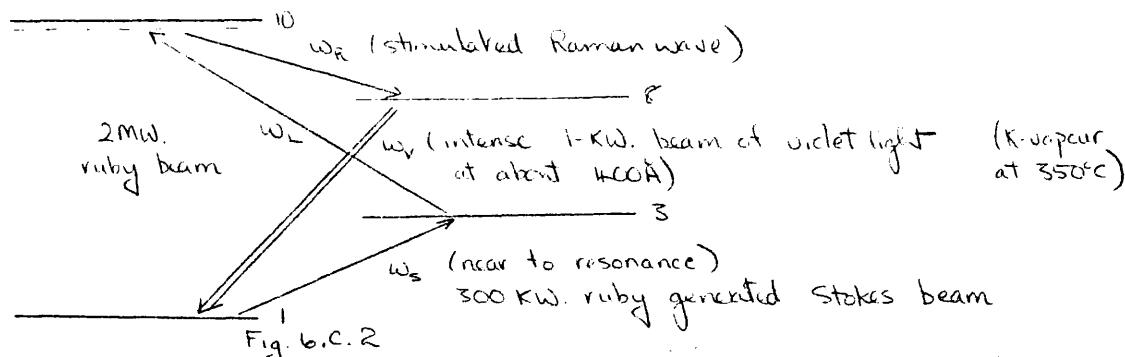 10
ω_R (stimulated Raman wave)
8
2MW.
ruby beam
ω_L
ω_V (intense 1-KW. beam of violet light
at about 4000Å)
(K-vapour
at 350°C)
3
ω_S (near to resonance)
300 KW. ruby generated Stokes beam
1
Fig. 6.C.2